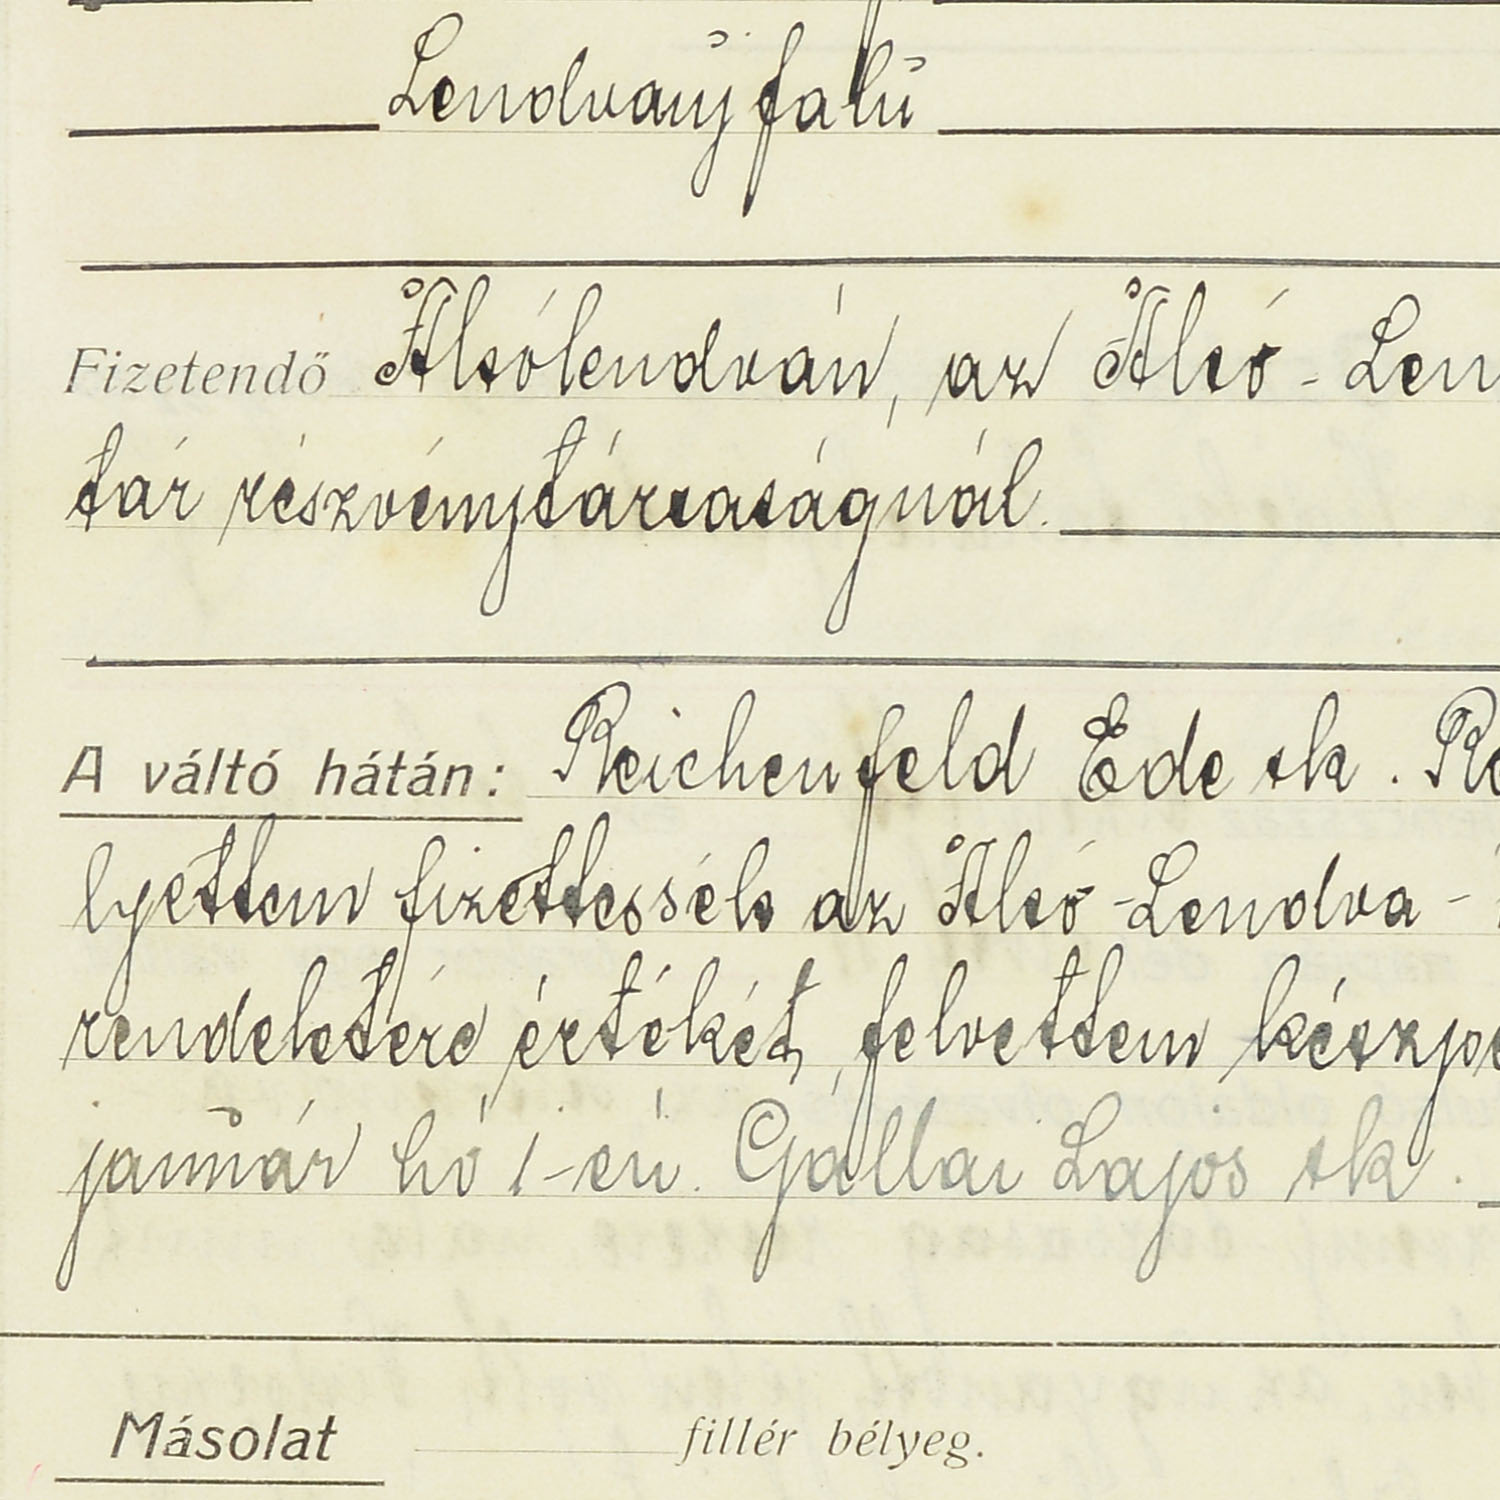 Lendvaujfalu
Fizetendő Alsólendván, az Alsó-Len
tár részvénytársaságnál.
A váltó hátán: Reichenfeld Ede sk. Re
lyettem fizettessék az Alsó-Lendva-
rendeletére értékét felvettem készpé
január hó 1-én. Gállai Lajos sk.
Másolat fillér bélyeg.